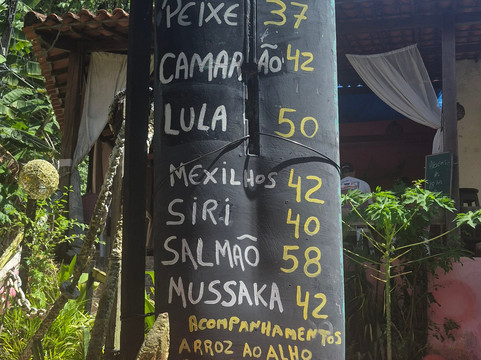 PEIXE 37
CAMARÃO 42
LULA 50
MEXILHOS 42
SIRI 40
SALMÃO 58
MUSSAKA 42
ACOMPANHAMENTOS
ARROZ AO ALHO